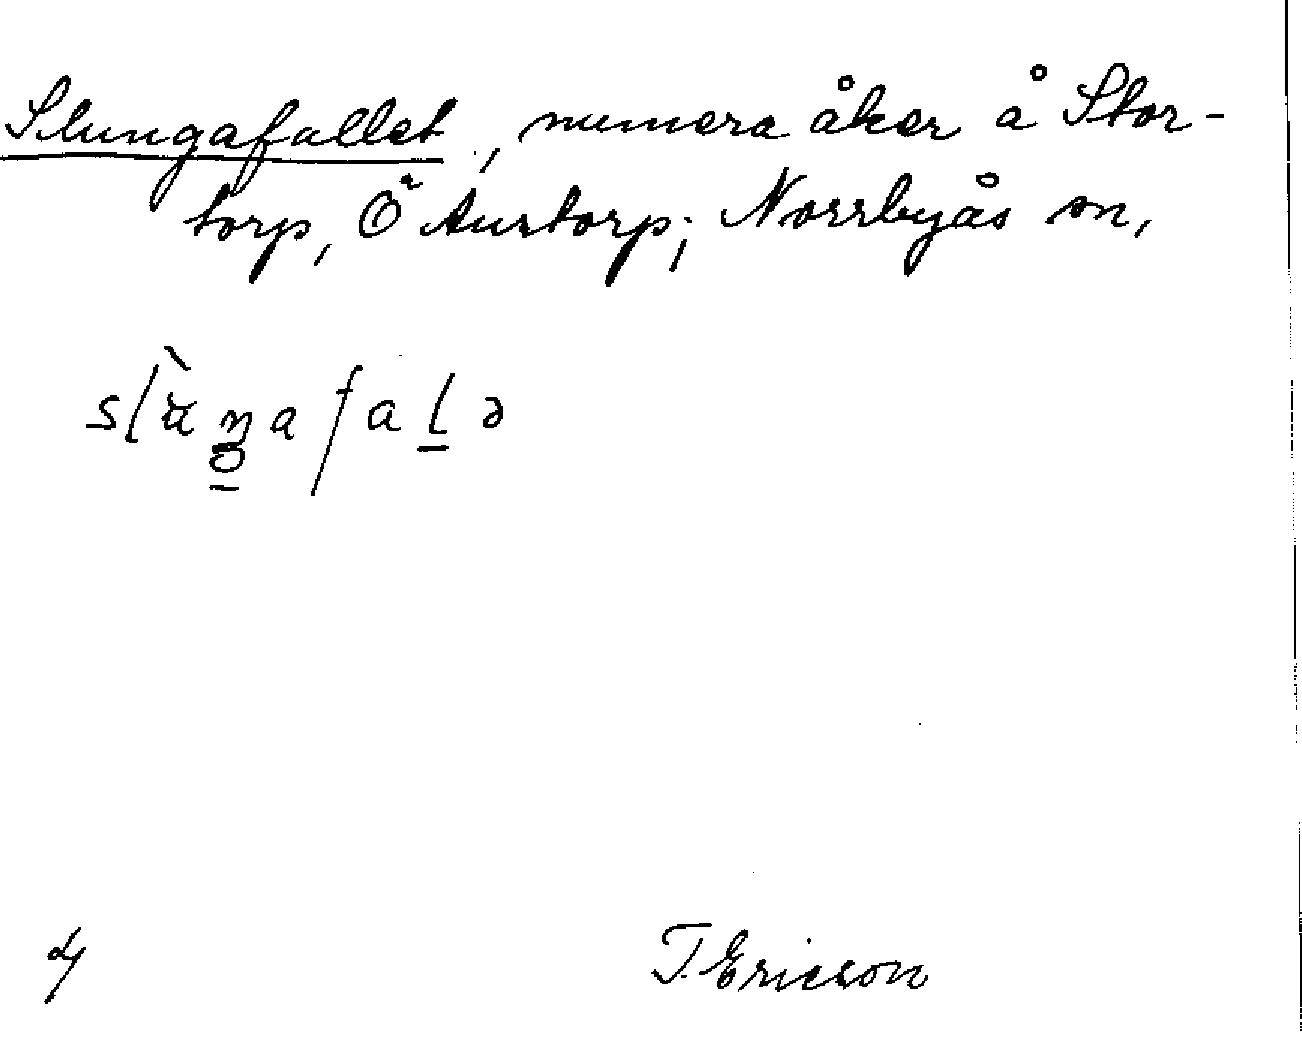 Slungafallet, numera åker å Stor-
torp, Ö Aurtorp; Norrbyås sn,
T. Ericson